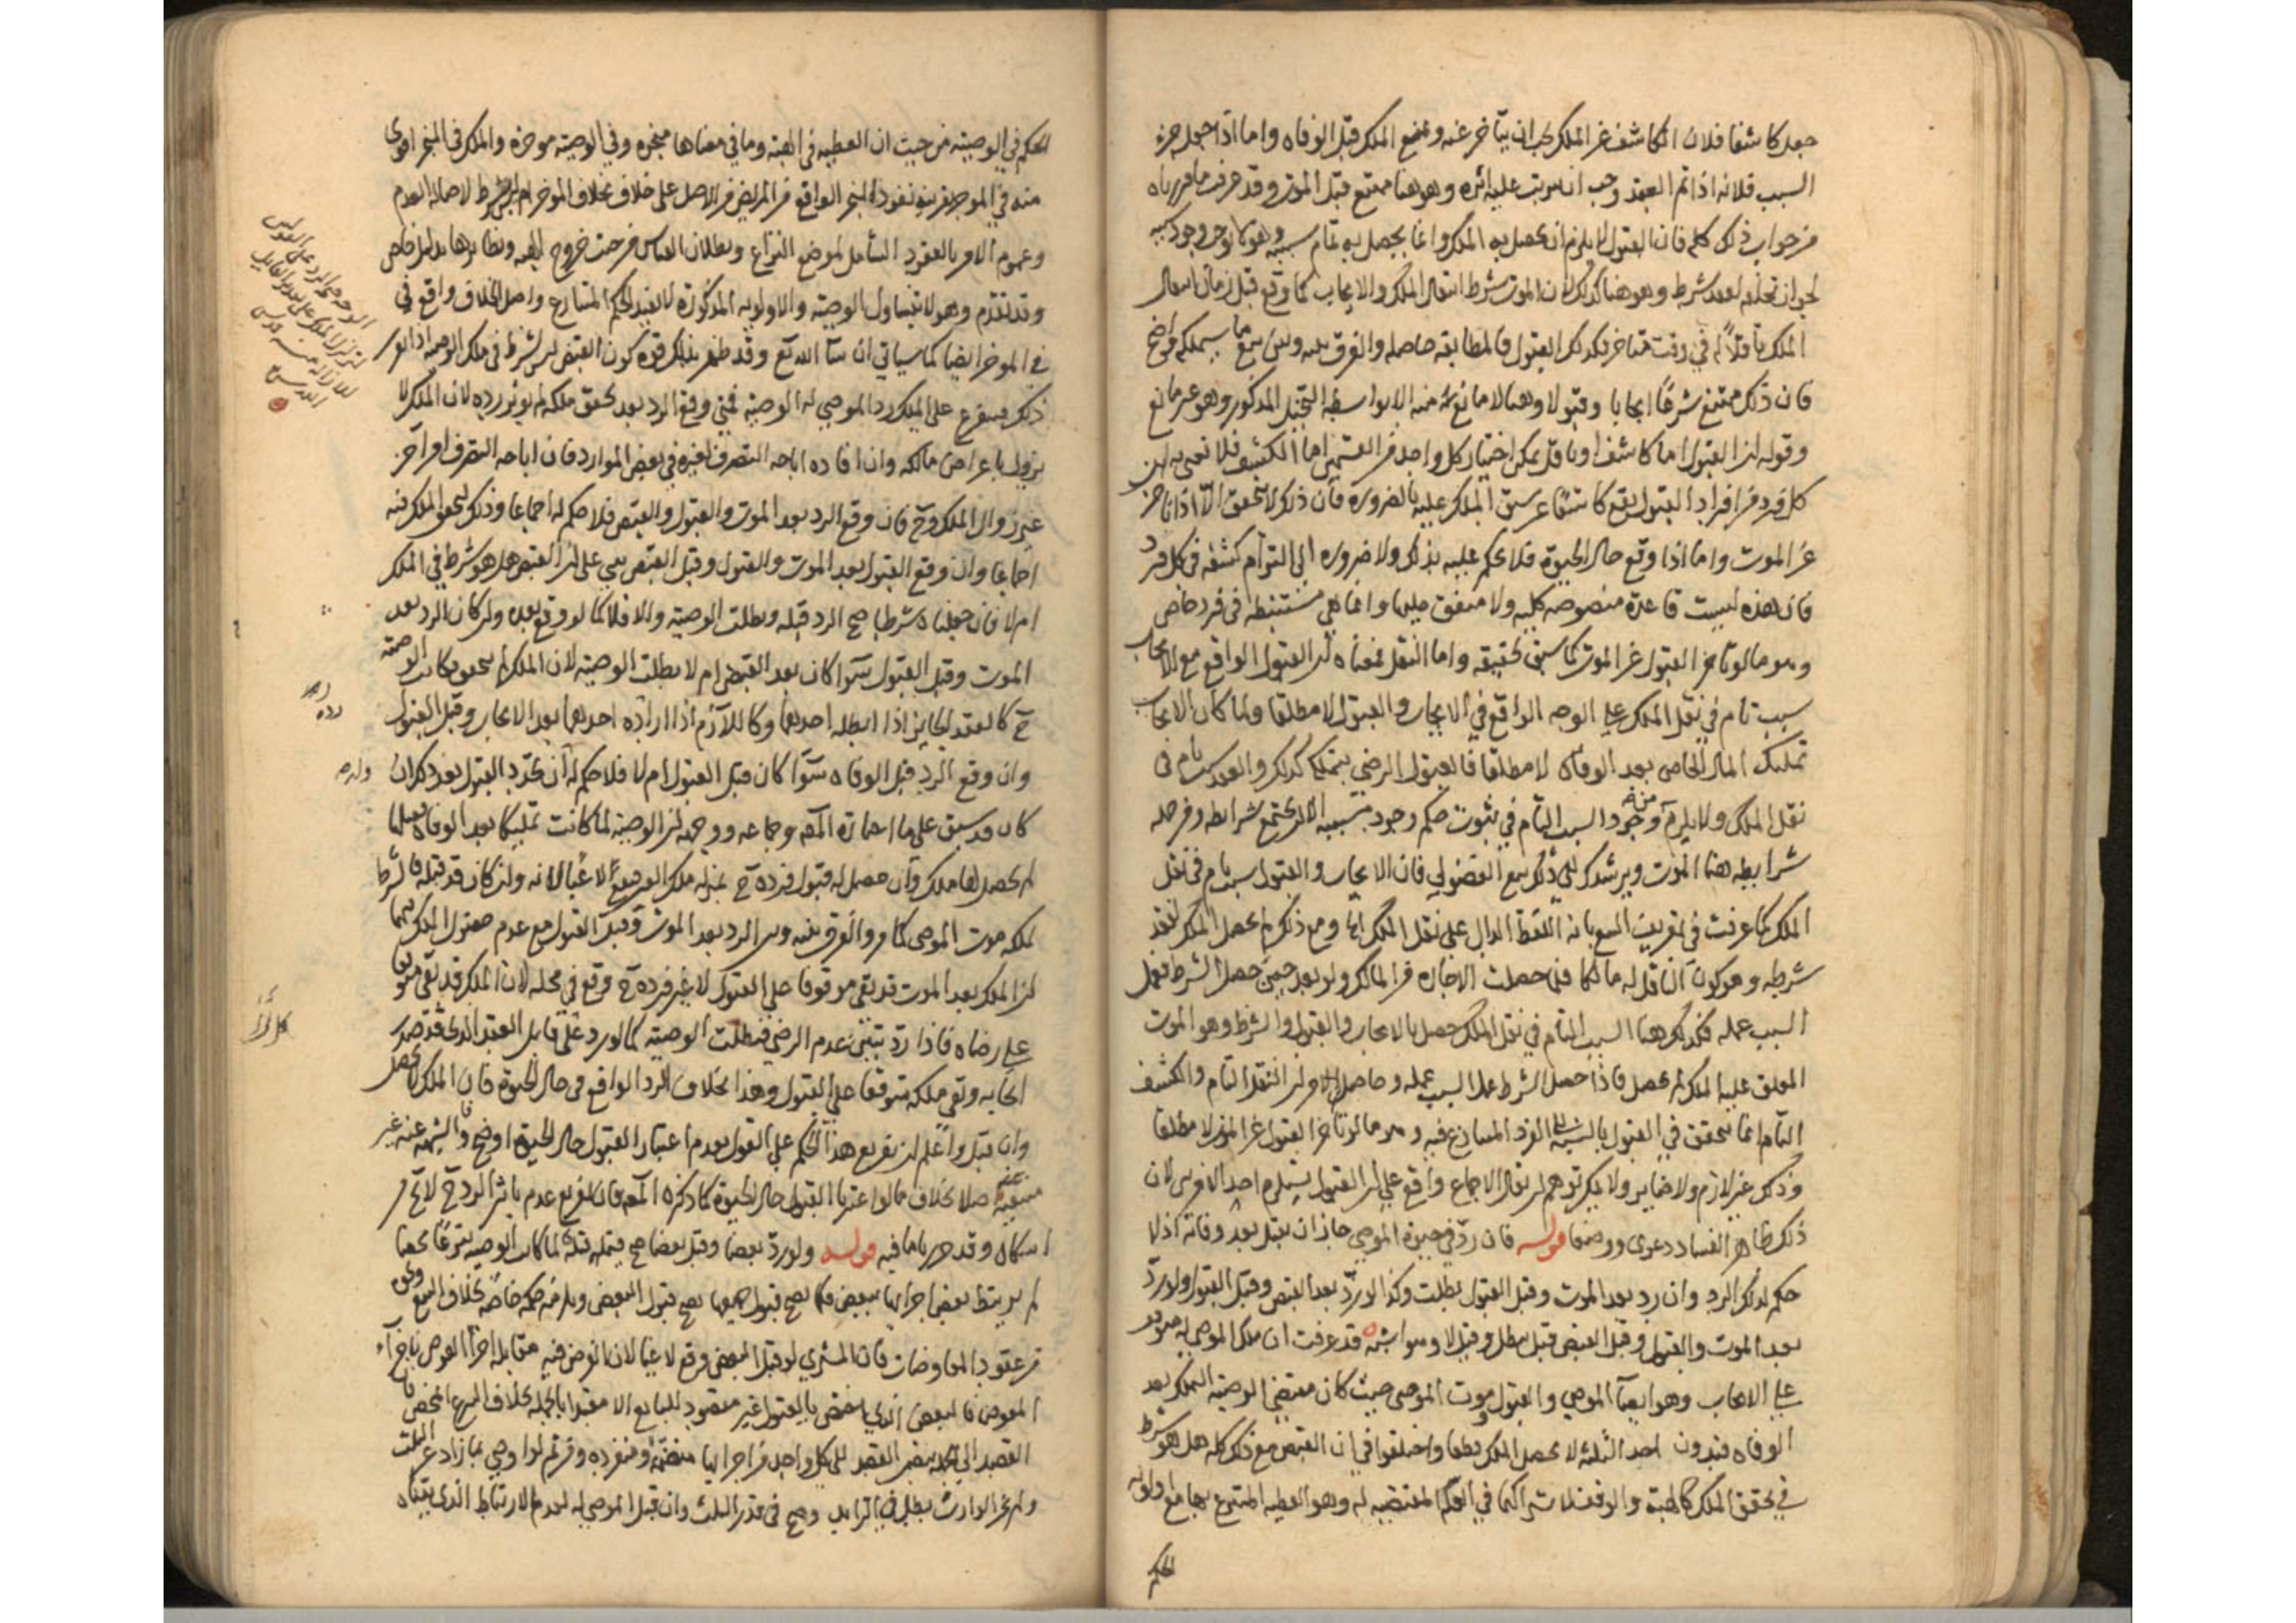 جعل كاشفا فلان الكاشف عن الملك يجب ان يتاخر عنه ويمتنع الملك قبل الوفاه واما اذا جعل جزء
السبب فلانه اذا تم العقد وجب ان يترتب عليه اثره وهو هنا ممتنع قبل الموت وقد عرفت مما قررناه
من جواب ذلك كله فان القبول لا يلزم ان يحصل به الملك وانما يحصل به تمام سببه
لجواز تخلفه لفقد شرط وهو هنا كذلك لان الموت شرط انتقال الملك والايجاب كما وقع قبل زمان انتقال
الملك ناقلا له في وقت متاخر فكذلك القبول فالمطابقه حاصله والفرق بينه وبين بيع ما سيملكه واضح
فان ذلك ممتنع شرعا ايجابا وقبولا وهنا لا مانع منه الا بواسطه التخيل المذكور وهو غير مانع
وقوله ان القبول اما كاشف او ناقل يمكن اختيار كل واحد من القسمين اما الكشف فلا نعني به ان
كل فرد من افراد القبول يقع كاشفا عن سبق الملك عليه بالضروره فان ذلك لا يتحقق الا اذا تاخر
عن الموت واما اذا وقع حال الحيوة فلا يحكم عليه بذلك ولا ضروره الى التزام كشفه في كل فرد
فان هذه ليست قاعدة منصوصه كليه ولا متفق عليها وانما هي مستنبطه في فرد خاص
وهو ما لو تاخر القبول عن الموت كما سبق تحقيقه واما النقل فمعناه ان القبول الواقع مع الايجاب
سبب تام في نقل الملك على الوجه الواقع في الايجاب والقبول لا مطلقا ولما كان الايجاب
تمليك المال الخاص بعد الوفاه لا مطلقا فالقبول الرضى بتملكه كذلك والعقد سبب تام في
نقل الملك ولا يلزم من وجود السبب التام في ثبوت حكم وجود مسببه الا ان تجتمع شرائطه ومن جمله
شرايطه هنا الموت ويرشدك الى ذلك بيع الفضولي فان الايجاب والقبول سبب تام في نقل
الملك كما عرفت في تعريف البيع بانه اللفظ الدال على نقل الملك الخ ومع ذلك لم يحصل الملك لفقد
شرطه وهو كون الناقل له مالكا فلما حصلت الاجازه من المالك ولو بعد حين حصل الشرط فعمل
السبب عمله فكذلك هنا السبب التام في نقل الملك حصل بالايجاب والقبول والشرط وهو الموت
المعلق عليه الملك لم يحصل فاذا حصل الشرط عمل السبب عمله وحاصل الامر ان النقل التام والكشف
التام انما يتحقق في القبول بالنسبه الى الفرد المتنازع فيه وهو ما لو تاخر القبول عن الموت لا مطلقا
وذلك غير لازم ولا ضاير ولا يمكن توهم ان يقال الاجماع واقع على ان القبول يستلزم احد الامرين لان
ذلك ظاهر الفساد دعوى ووضعا قوله فان رد في حيوة الموصي جاز ان يقبل بعد وفاته اذ لا
حكم لذلك الرد وان رد بعد الموت وقبل القبول بطلت وكذا لو رد بعد القبض وقبل القبول ولو رد
بعد الموت والقبول وقبل القبض قيل يبطل وقيل لا وهو اشبه قد عرفت ان ملك الموصى له متوقف
على الايجاب وهو ايصآ الموصي والقبول وموت الموصي حيث كان مقتضى الوصيه التملك بعد
الوفاه فبدون احد الثلثه لا يحصل الملك قطعا واختلفوا في ان القبض مع ذلك كله هل هو شرط
في تحقق الملك كالهبة والوقف لاشتراكهما في العلة المقتضيه له وهو العطيه المتبرع بها مع اولويه
الحكم
الحكم في الوصيه من حيث ان العطيه في الهبه وما في معناها منجزه وفي الوصيه موخره والملك في المنجز اقوى
منه في الموخر بقرينه نفوذ المنجز الواقع من المريض من الاصل على خلاف بخلاف الموخر ام ليس بشرط لاصاله العدم
وعموم الامر بالعقود الشامل لموضع النزاع وبطلان القياس من حيث خروج الهبه ونظائرها بدليل خاص
وقد تقدم وهو لا يتناول الوصيه والاولويه المذكورة لا تفيد الحكم المتنازع واصل الخلاف واقع في
في الموخر ايضا كما سياتي ان شآ الله تع وقد ظهر بذلك قوه كون القبض ليس شرطا في ملك الوصيه اذا تقرر
ذلك فيتفرع على الملك رد الموصى له الوصيه فمتى وقع الرد بعد تحقق ملكه لم يوثر رده لان الملك لا
يزول باعراض مالكه وان افاده اباحه التصرف لغيره في بعض الموارد فان اباحه التصرف امر آخر
غير زوال الملك وح فان وقع الرد بعد الموت والقبول والقبض فلا حكم له اجماعا وذلك لتحقق الملك فيه
اجماعا وان وقع القبول بعد الموت والقبول وقبل القبض بني على ان القبض هل هو شرط في الملك
ام لا فان جعلناه شرطا صح الرد قبله وبطلت الوصيه والا فلا كما لو وقع بعده وان كان الرد بعد
الموت وقبل القبول سوآ كان بعد القبض ام لا بطلت الوصيه لان الملك لم يتحقق فكانت الوصيه
ح كالعقد الجايز اذا ابطله احدهما وكاللازم اذا اراده احدهما بعد الايجاب وقبل القبول
وان وقع الرد قبل الوفاه سوآ كان قبل القبول ام لا فلا حكم له ان تجرد القبول بعد ذلك ان
كان قد سبق على ما اختاره المصه وجماعه ووجهه ان الوصيه لما كانت تمليكا بعد الوفاه فقبلها
لم يحصل لها ملك وان حصل له قبول فرده ح بمنزله ملك الغير
ملكه موت الموصى كما مر والفرق بينه وبين الرد بعد الموت وقبل القبول مع عدم حصول الملك فيهما
ان الملك بعد الموت قد بقي موقوفا على القبول لا غير فرده ح وقع في محله لان الملك قد بقي موقوفا
على رضاه فاذا رد تبين عدم الرضى فبطلت الوصيه كما لو رد على قابل العقد الذي قد صدر
ايجابه وبقي ملكه متوقفا على القبول وهذا بخلاف الرد الواقع في حال الحيوة فان الملك لم يحصل
وان قبل واعلم ان تفريع هذا الحكم على القول بعدم اعتبار القبول حال الحيوة اوضح والشبهه عنه غير
منتفيه اصلا بخلاف ما لو اعتبرنا القبول حال الحيوة كما ذكره المصه فان تفريع عدم تاثير الرد ح لا يخ من
اشكال وقد حررنا ما فيه قوله ولو رد بعضا وقبل بعضا صح فيما قبله لما كانت الوصيه تبرعا محضا
لم يرتبط بعض اجزائها ببعض فكما يصح قبول جميعها يصح قبول البعض ويلزمه حكمه خاصه بخلاف البيع ونحوه
من عقود المعاوضات فان المشتري لو قبل البعض وقع لاغيا لان الغرض فيه مقابله اجزآ العوض باجزآء
المعوض فالبعض الذي اختص بالقبول غير مقصود للبايع الا مقيدا بالجمله بخلاف التبرع المحض فان
القصد الى الجمله يتضمن القصد الى كل واحد من اجزائها منضمة ومنفرده ومن ثم لو اوصى بما زاد عن الثلث
ولم يجز الوارث بطل في الزايد وصح في قدر الثلث وان قبل الموصى له لعدم الارتباط الذي بيناه